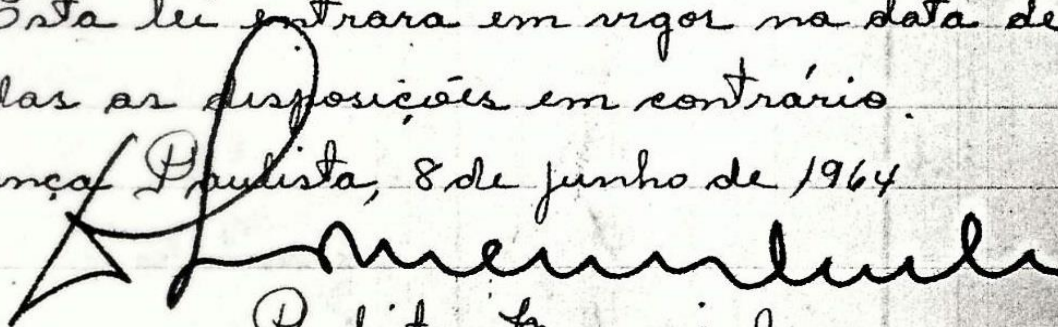 Esta lei entrara em vigor na data de
das as disposições em contrário.
nça Paulista, 8 de junho de 1964